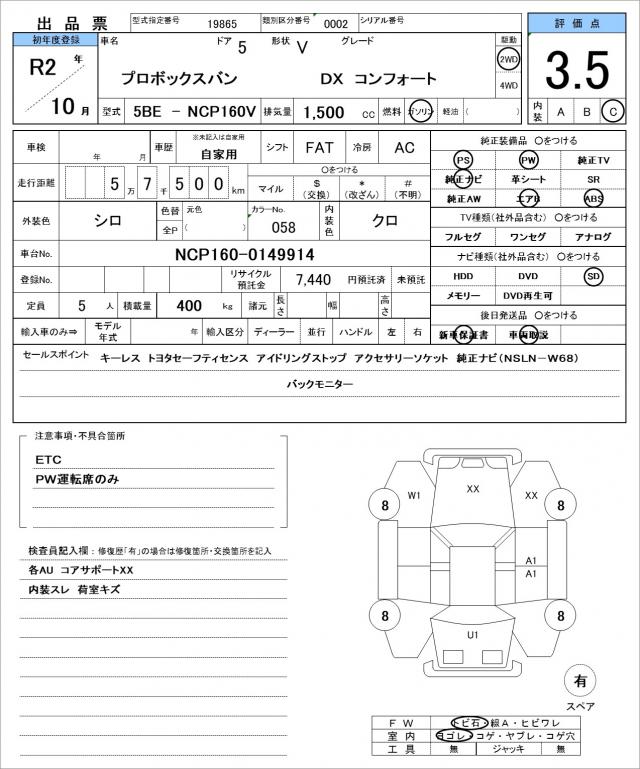 出品票 型式指定番号 19865 類別区分番号 0002 シリアル番号 評価点
初年度登録 車名 ドア 5 形状 V グレード 駆動
R2 年 プロボックスバン DX コンフォート 2WD 3.5
4WD
10 月 型式 5BE － NCP160V 排気量 1,500 cc 燃料 ガソリン 軽油 ( ) 内装 A B C
車検 年 月 車歴 ※未記入は自家用 自家用 シフト FAT 冷房 AC 純正装備品 〇をつける
PS PW 純正TV
走行距離 5 万 7 千 5 0 0 km 〇をつける
マイル $ (交換) * (改ざん) # (不明) 純正ナビ 革シート SR
純正AW エアB ABS
外装色 シロ 色替 元色 カラーNo. 058 内装色 クロ TV種類(社外品含む) 〇をつける
全P ( ) フルセグ ワンセグ アナログ
車台No. NCP160-0149914 ナビ種類(社外品含む) 〇をつける
登録No. リサイクル預託金 7,440 円預託済 未預託 HDD DVD SD
定員 5 人 積載量 400 kg 諸元 長さ 幅 高さ メモリー DVD再生可
後日発送品 〇をつける
輸入車のみ⇒ モデル年式 年 輸入区分 ディーラー 並行 ハンドル 左 右 新車保証書 車両取説
セールスポイント キーレス トヨタセーフティセンス アイドリングストップ アクセサリーソケット 純正ナビ(NSLN－W68)
バックモニター
注意事項・不具合箇所
ETC
PW運転席のみ
検査員記入欄：修復歴「有」の場合は修復箇所・交換箇所を記入
各AU コアサポートXX
内装スレ 荷室キズ
W1 XX XX
8 8
A1
A1
8 8
U1
有
スペア
FW トビ石・線A・ヒビワレ
室内 ヨゴレ・コゲ・ヤブレ・コゲ穴
工具 無 ジャッキ 無